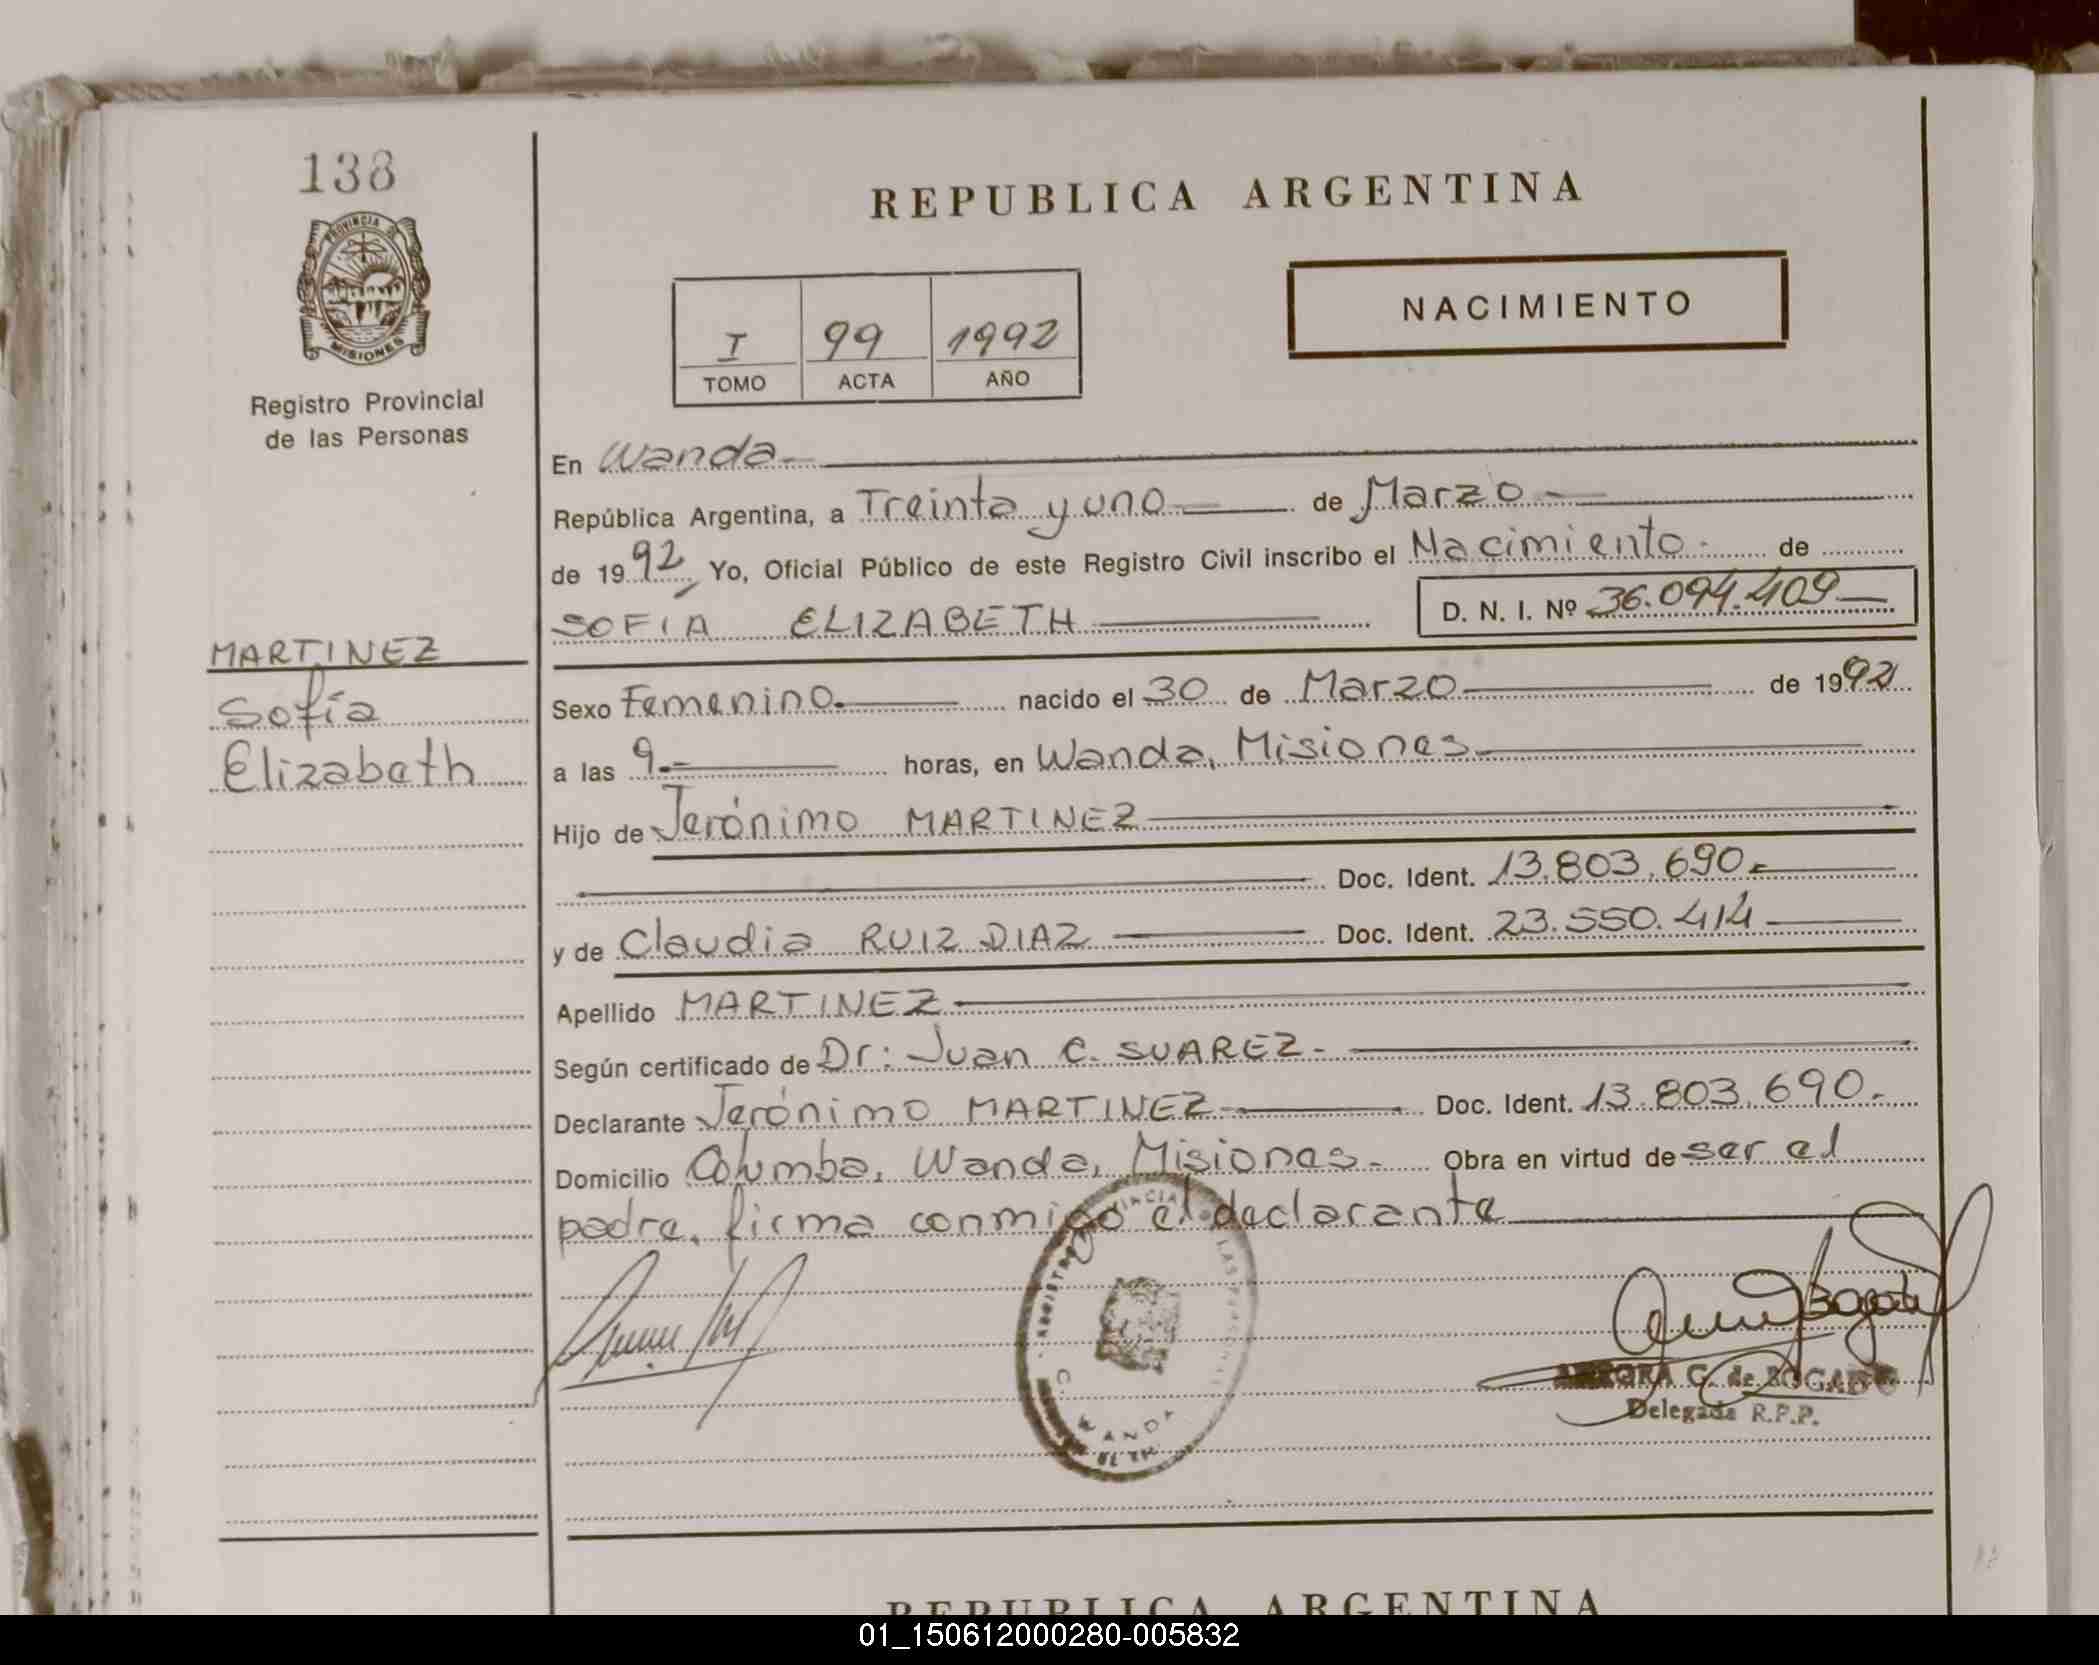 138
PROVINCIA DE
MISIONES
Registro Provincial
de las Personas
MARTINEZ
Sofía
Elizabeth
REPUBLICA ARGENTINA
NACIMIENTO
I 99 1992
TOMO ACTA AÑO
En Wanda
República Argentina, a Treinta y uno de Marzo
de 1992, Yo, Oficial Público de este Registro Civil inscribo el Nacimiento de
SOFIA ELIZABETH D. N. I. Nº 36.094.409
Sexo Femenino nacido el 30 de Marzo de 1992
a las 9 horas, en Wanda, Misiones
Hijo de Jerónimo MARTINEZ
Doc. Ident. 13.803.690
y de Claudia RUIZ DIAZ Doc. Ident. 23.550.414
Apellido MARTINEZ
Según certificado de Dr: Juan C. SUAREZ
Declarante Jerónimo MARTINEZ Doc. Ident. 13.803.690.
Domicilio Columba, Wanda, Misiones. Obra en virtud de ser el
padre, firma conmigo el declarante
WANDA
AURORA G. de BOGADO
Delegada R.P.P.
REPUBLICA ARGENTINA
01_150612000280-005832